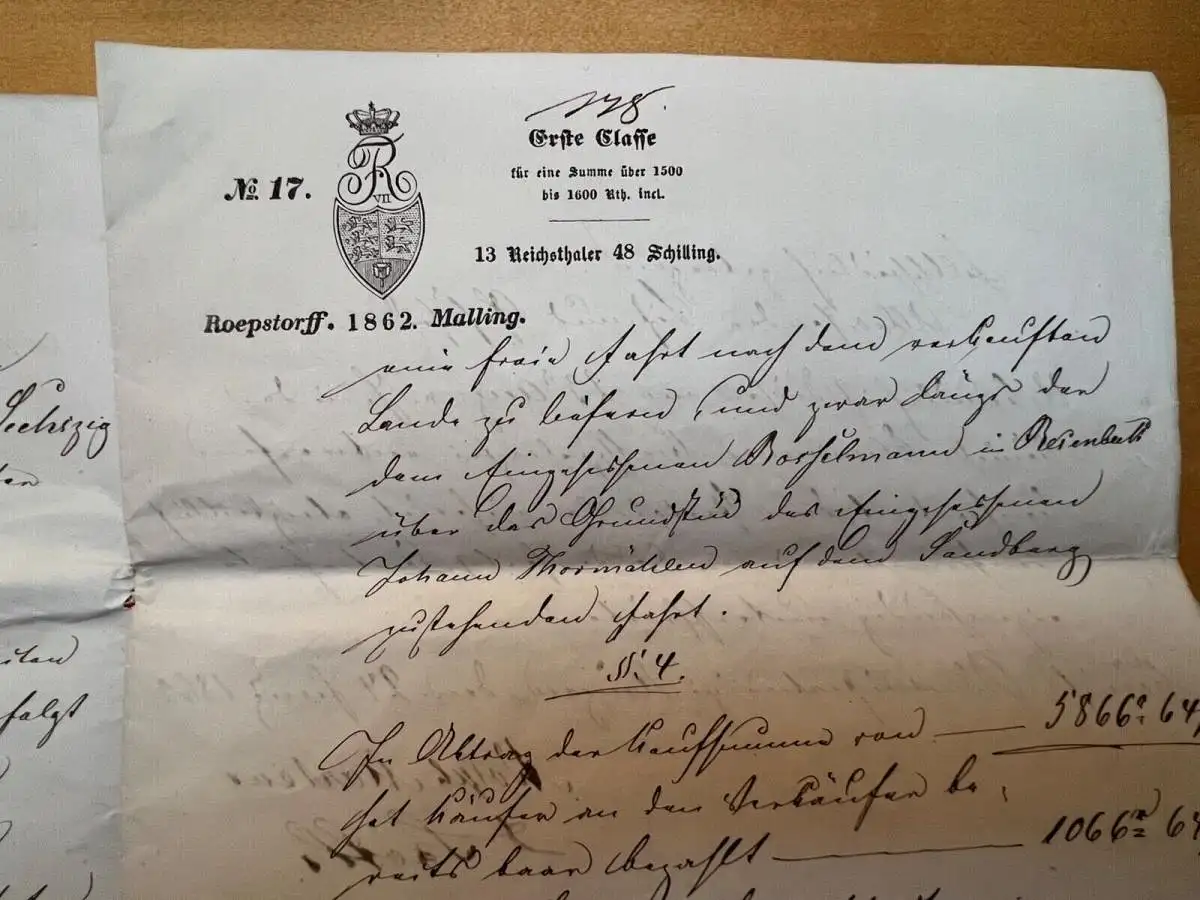 178.
Erste Classe
für eine Summe über 1500
bis 1600 Rth. incl.
№ 17.
R
VII
13 Reichsthaler 48 Schilling.
Roepstorff. 1862. Malling.
eine freie Fahrt nach dem verkauften
Lande zu liefern, und zwar längs der
dem Eingesessenen Bosselmann in
über das Grundstück des Eingesessenen
Johann Thormählen auf dem Sandberg
zustehenden Fahrt.
§. 4.
In Abtrag der Kaufsumme von — 5866 64
hat Käufer an den Verkäufer be
reits baar bezahlt — 1066 64
Sechszig
folgt